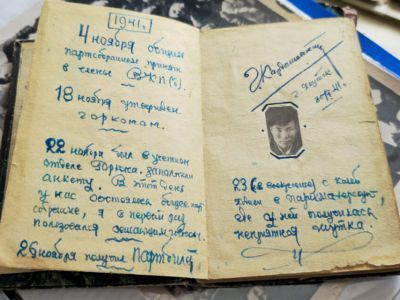 1941г.
4 ноября общим
партсобранием принят
в члены ВКП(б).
18 ноября утвержден
горкомом.
22 ноября был в учетном
отделе Горкома, заполнял
анкету. В этот день
у нас состоялось
собрание, я в первый раз
пользовался решающим голосом.
26 ноября получил Партбилет
г. Якутск
23 (в воскресенье) с
в парикмахерскую,
где у ней получилась
неприятная шутка.